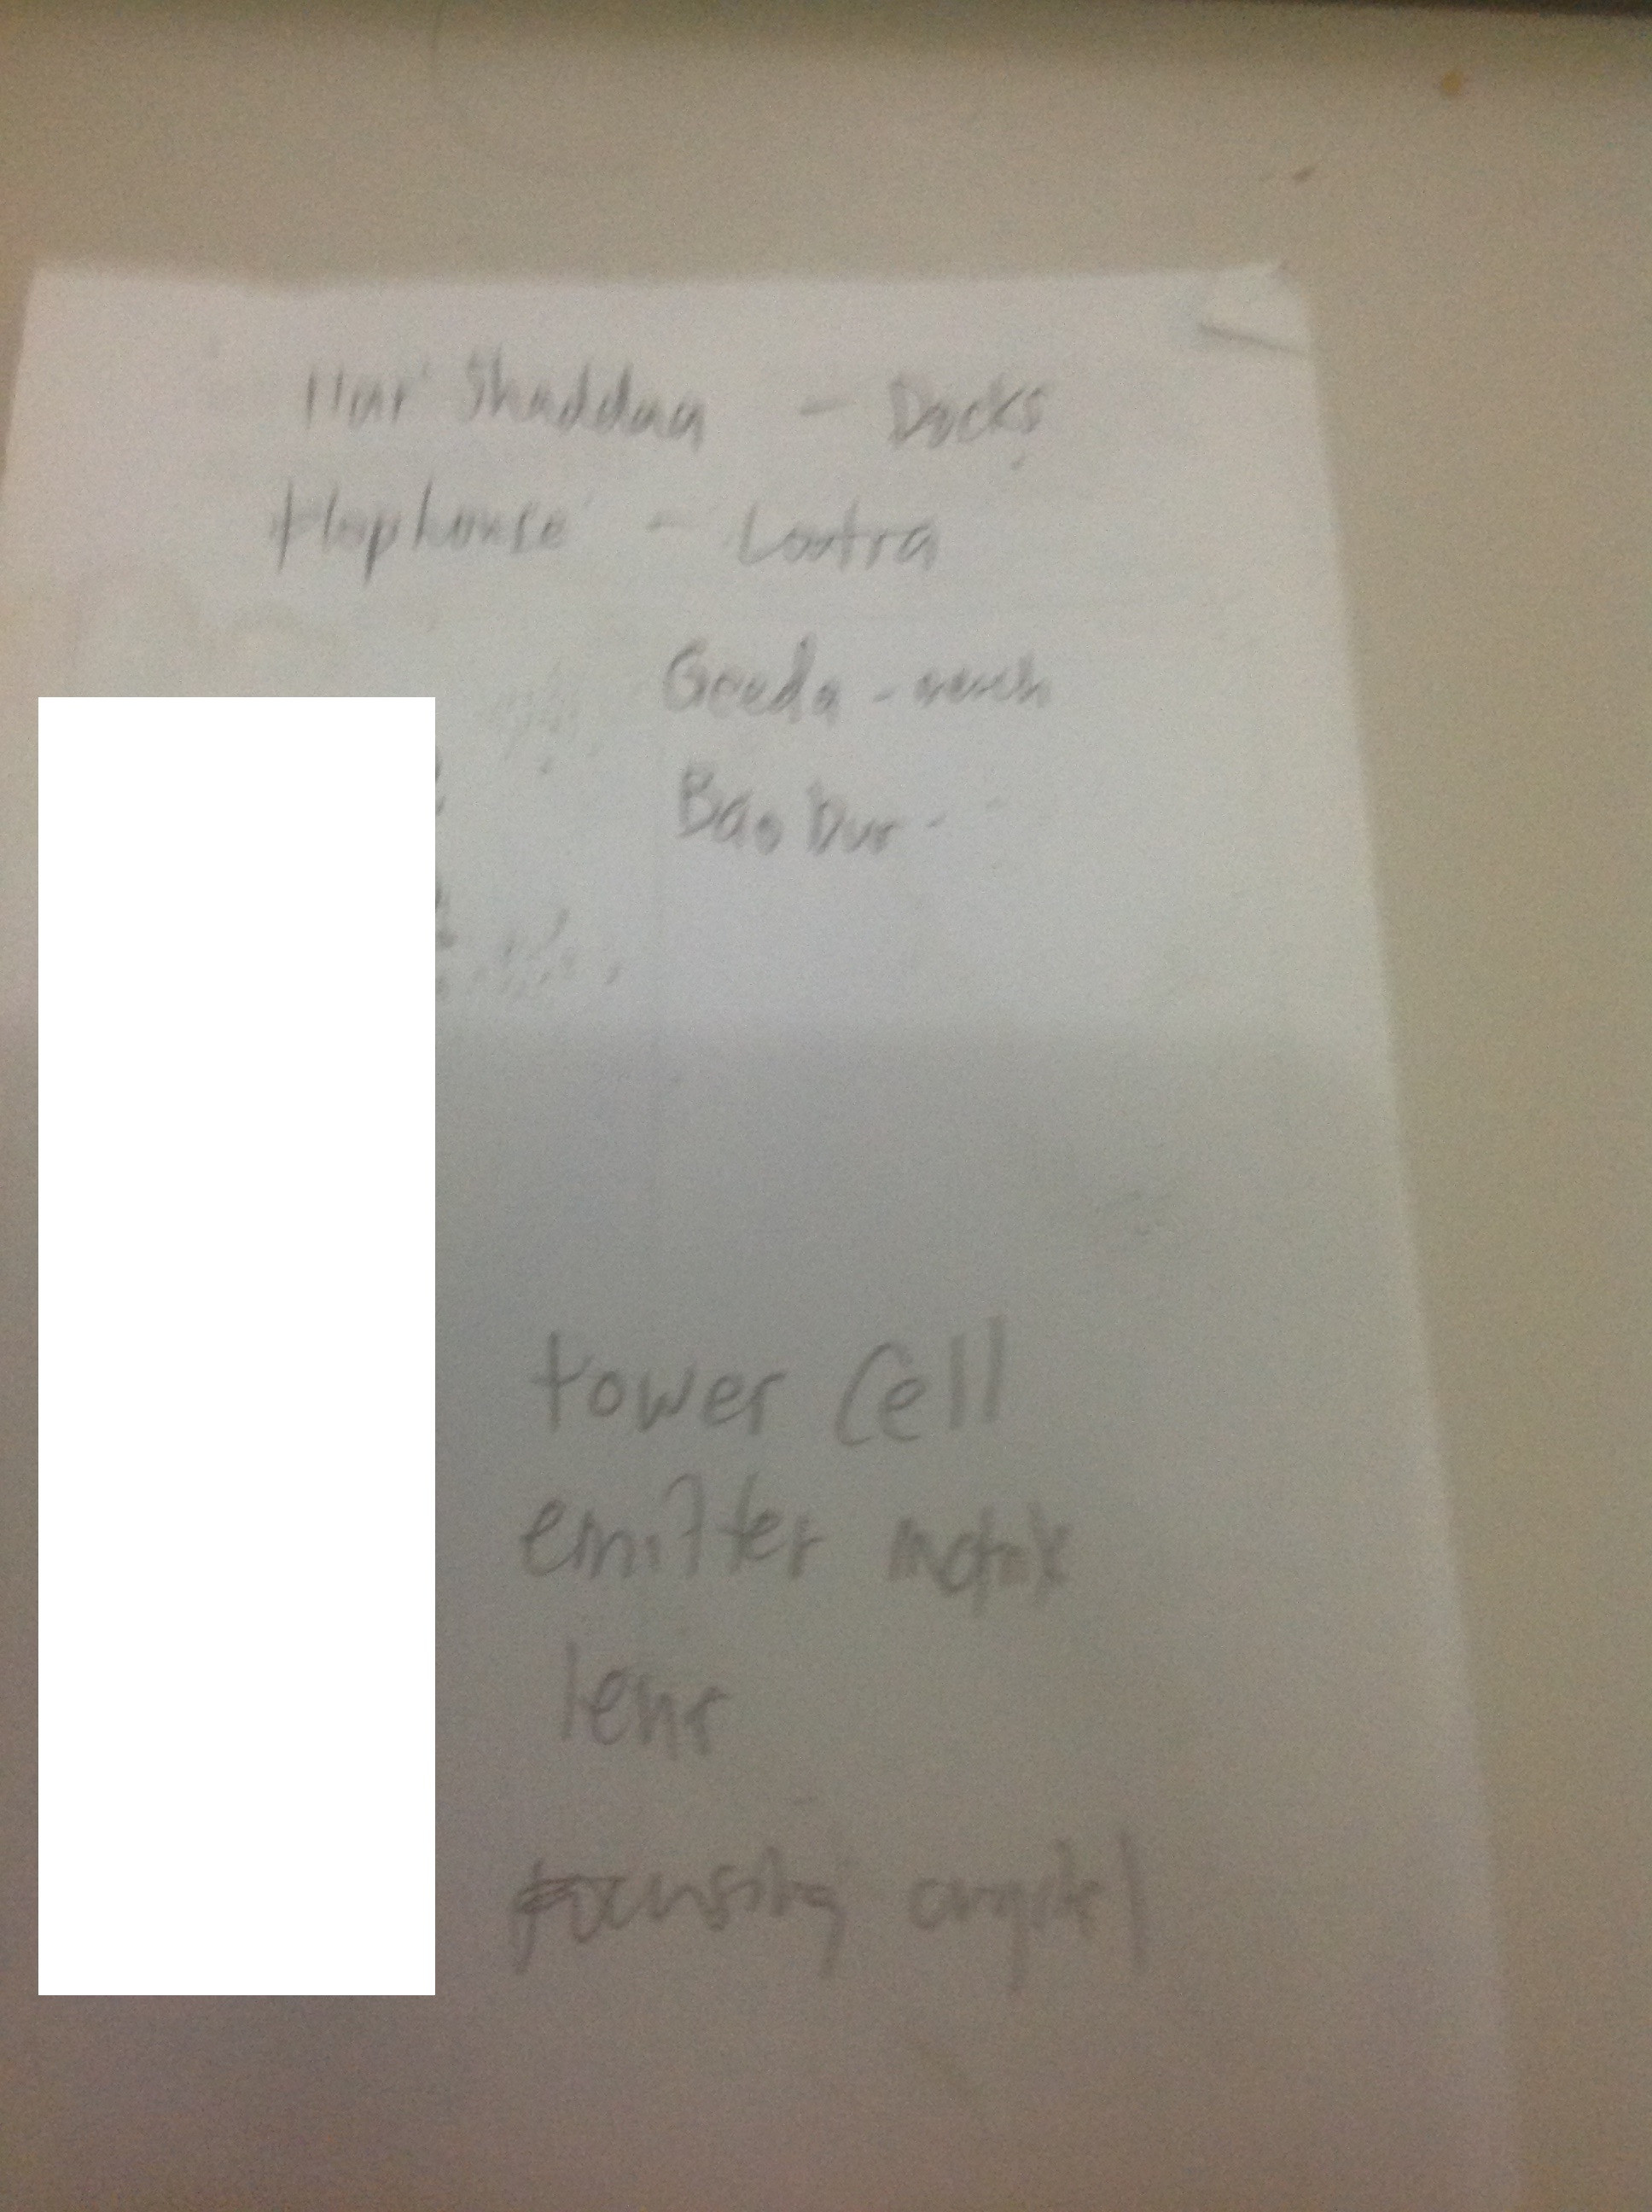 Nar Shaddaa - Docks
flophouse - Lootra
Geeda -
Bao Dur -
tower Cell
emitter matrix
lens
focusing crystal